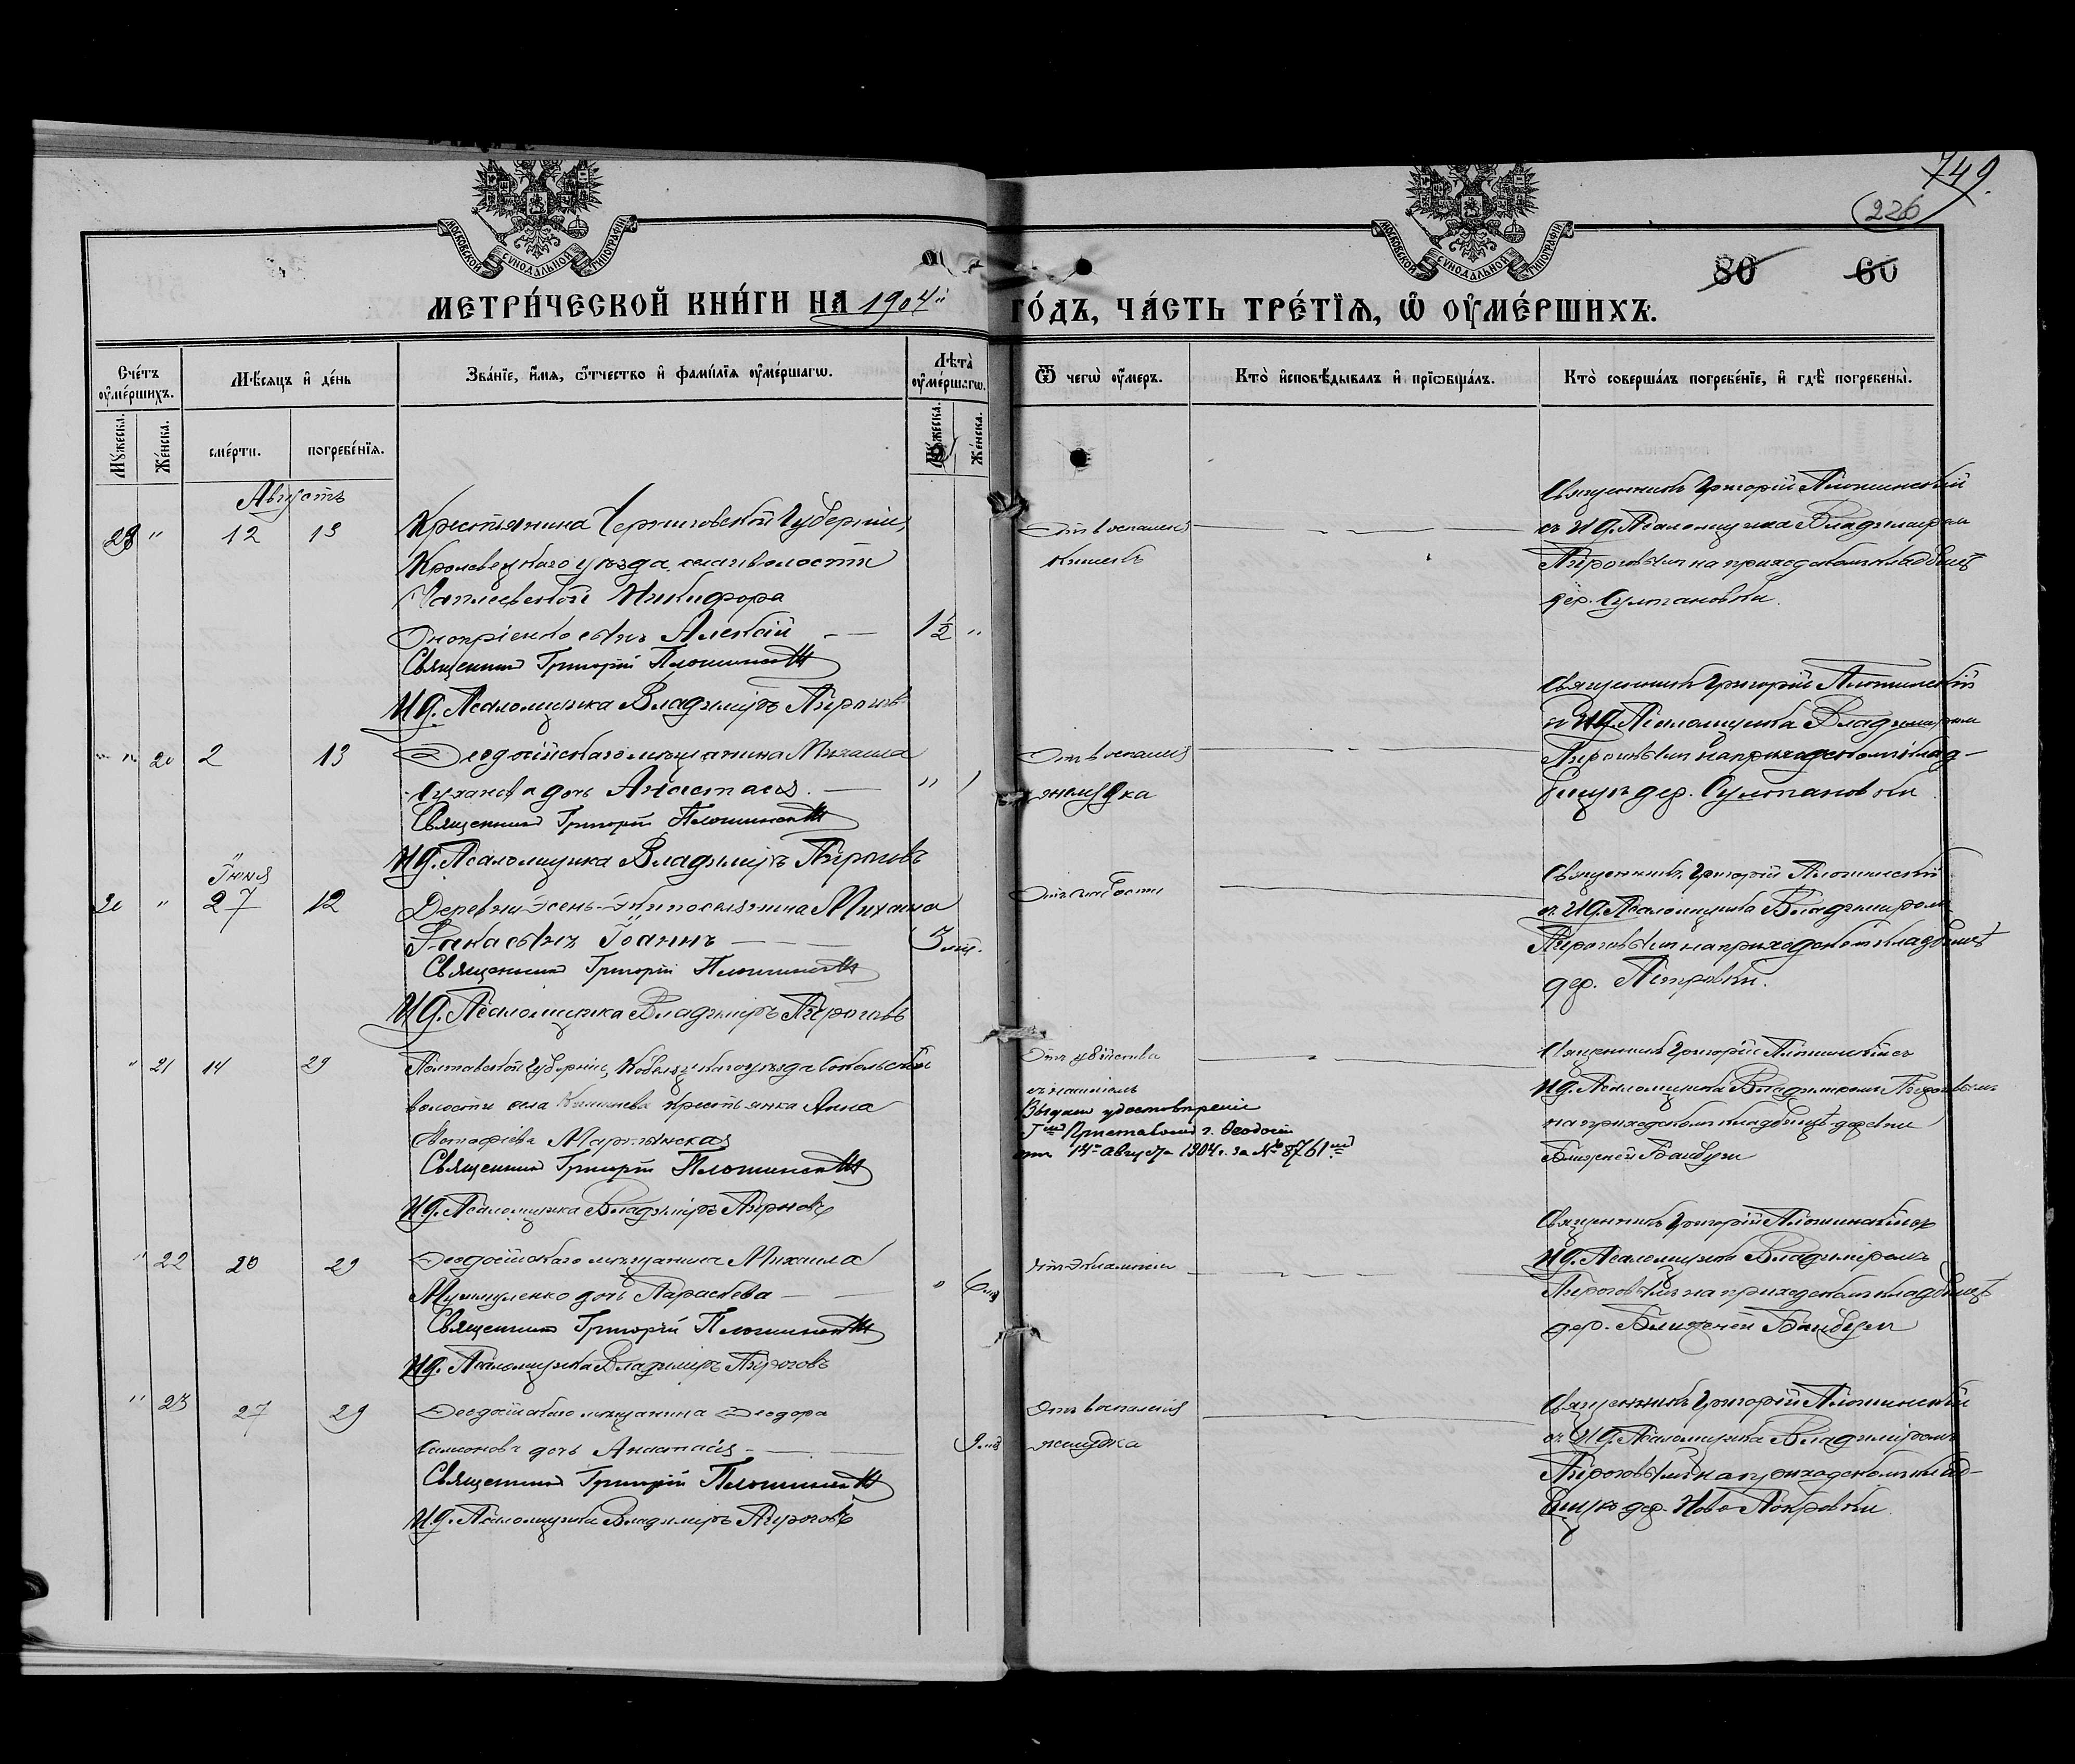 749.
226
МОСКОВСКОЙ СѴНОДАЛЬНОЙ ТИПОГРАФІИ
МОСКОВСКОЙ СѴНОДАЛЬНОЙ ТИПОГРАФІИ
80 60
МЕТРИ́ЧЕСКОЙ КНИ́ГИ НА 1904 ГО́ДЪ, ЧА́СТЬ ТРЕ́ТЇѦ, Ѽ ОУ҆МЕ́РШИХЪ.
Сче́тъ оу҆ме́ршихъ.
Мѣ́сяцъ и҆ де́нь
Зва́нїе, и҆́мя, ѻ҆́тчество и҆ фами́лїя оу҆ме́ршагѡ.
Лѣта̀ оу҆ме́ршагѡ.
Ѿ чегѡ̀ оу҆́меръ.
Кто̀ и҆сповѣ́дывалъ и҆ прїѡбща́лъ.
Кто̀ соверша́лъ погребе́нїе, и҆ гдѣ̀ погребены̀.
Мꙋ́жеска.
Же́нска.
сме́рти.
погребе́нїя.
Мꙋ́жеска.
Же́нска.
Августъ
29 " 12 13 Крестьянина Черниговской Губерніи,
Кролевецкаго уѣзда волости
Никифора
Оноприенко сынъ Алексій 1½ "
Священник Григорій Плошинскій
И.д. Псаломщика Владиміръ Пироговъ
Отъ воспаления
кишекъ
Священникъ Григорій Плошинскій
съ И.д. Псаломщика Владиміром
Пироговымъ на приходском кладбищѣ
дер. Султановки.
" 20 2 13 Ѳеодосійскаго мѣщанина Михаила
дочь Анастасія. " 1
Священник Григорій Плошинскій
И.д. Псаломщика Владиміръ Пироговъ
Отъ воспаления
желудка
Священникъ Григорій Плошинскій
съ И.д. Псаломщика Владиміром
Пироговым на приходском клад-
бищѣ дер. Султановки
Іюня
" 27 12 Деревни поселянина Михаила
сынъ Іоаннъ 3 мѣс.
Священник Григорій Плошинскій
И.д. Псаломщика Владиміръ Пироговъ
Отъ слабости
Священникъ Григорій Плошинскій
съ И.д. Псаломщика Владиміром
Пироговым на приходском кладбищѣ
дер. Петровки.
" 21 14 29 Полтавской Губерніи, Кобелякскаго уѣзда Сокольской
волости села крестьянка Анна
Священник Григорій Плошинскій
И.д. Псаломщика Владиміръ Пироговъ
Отъ убійства
Выдано удостовѣреніе
Приставом г. Ѳеодосіи
отъ 14го августа 1904 г. за № 8761
Священникъ Григорій Плошинскій съ
И.д. Псаломщика Владиміром Пироговым
на приходском кладбищѣ деревни
Ближней Байбуги
" 22 20 29 Ѳеодосійскаго мѣщанина Михаила
дочь Параскева " 6 мѣс
Священник Григорій Плошинскій
И.д. Псаломщика Владиміръ Пироговъ
отъ эклампсіи
Священникъ Григорій Плошинскій съ
И.д. Псаломщика Владиміромъ
Пироговымъ на приходском кладбищѣ
дер. Ближней Байбуги
" 23 27 29 Ѳеодосійскаго мѣщанина Ѳеодора
дочь Анастасія 9 мѣс
Священник Григорій Плошинскій
И.д. Псаломщика Владиміръ Пироговъ
Отъ воспаления
желудка
Священникъ Григорій Плошинскій
съ И.д. Псаломщика Владиміромъ
Пироговымъ на приходском клад-
бищѣ дер. Ново Покровки.